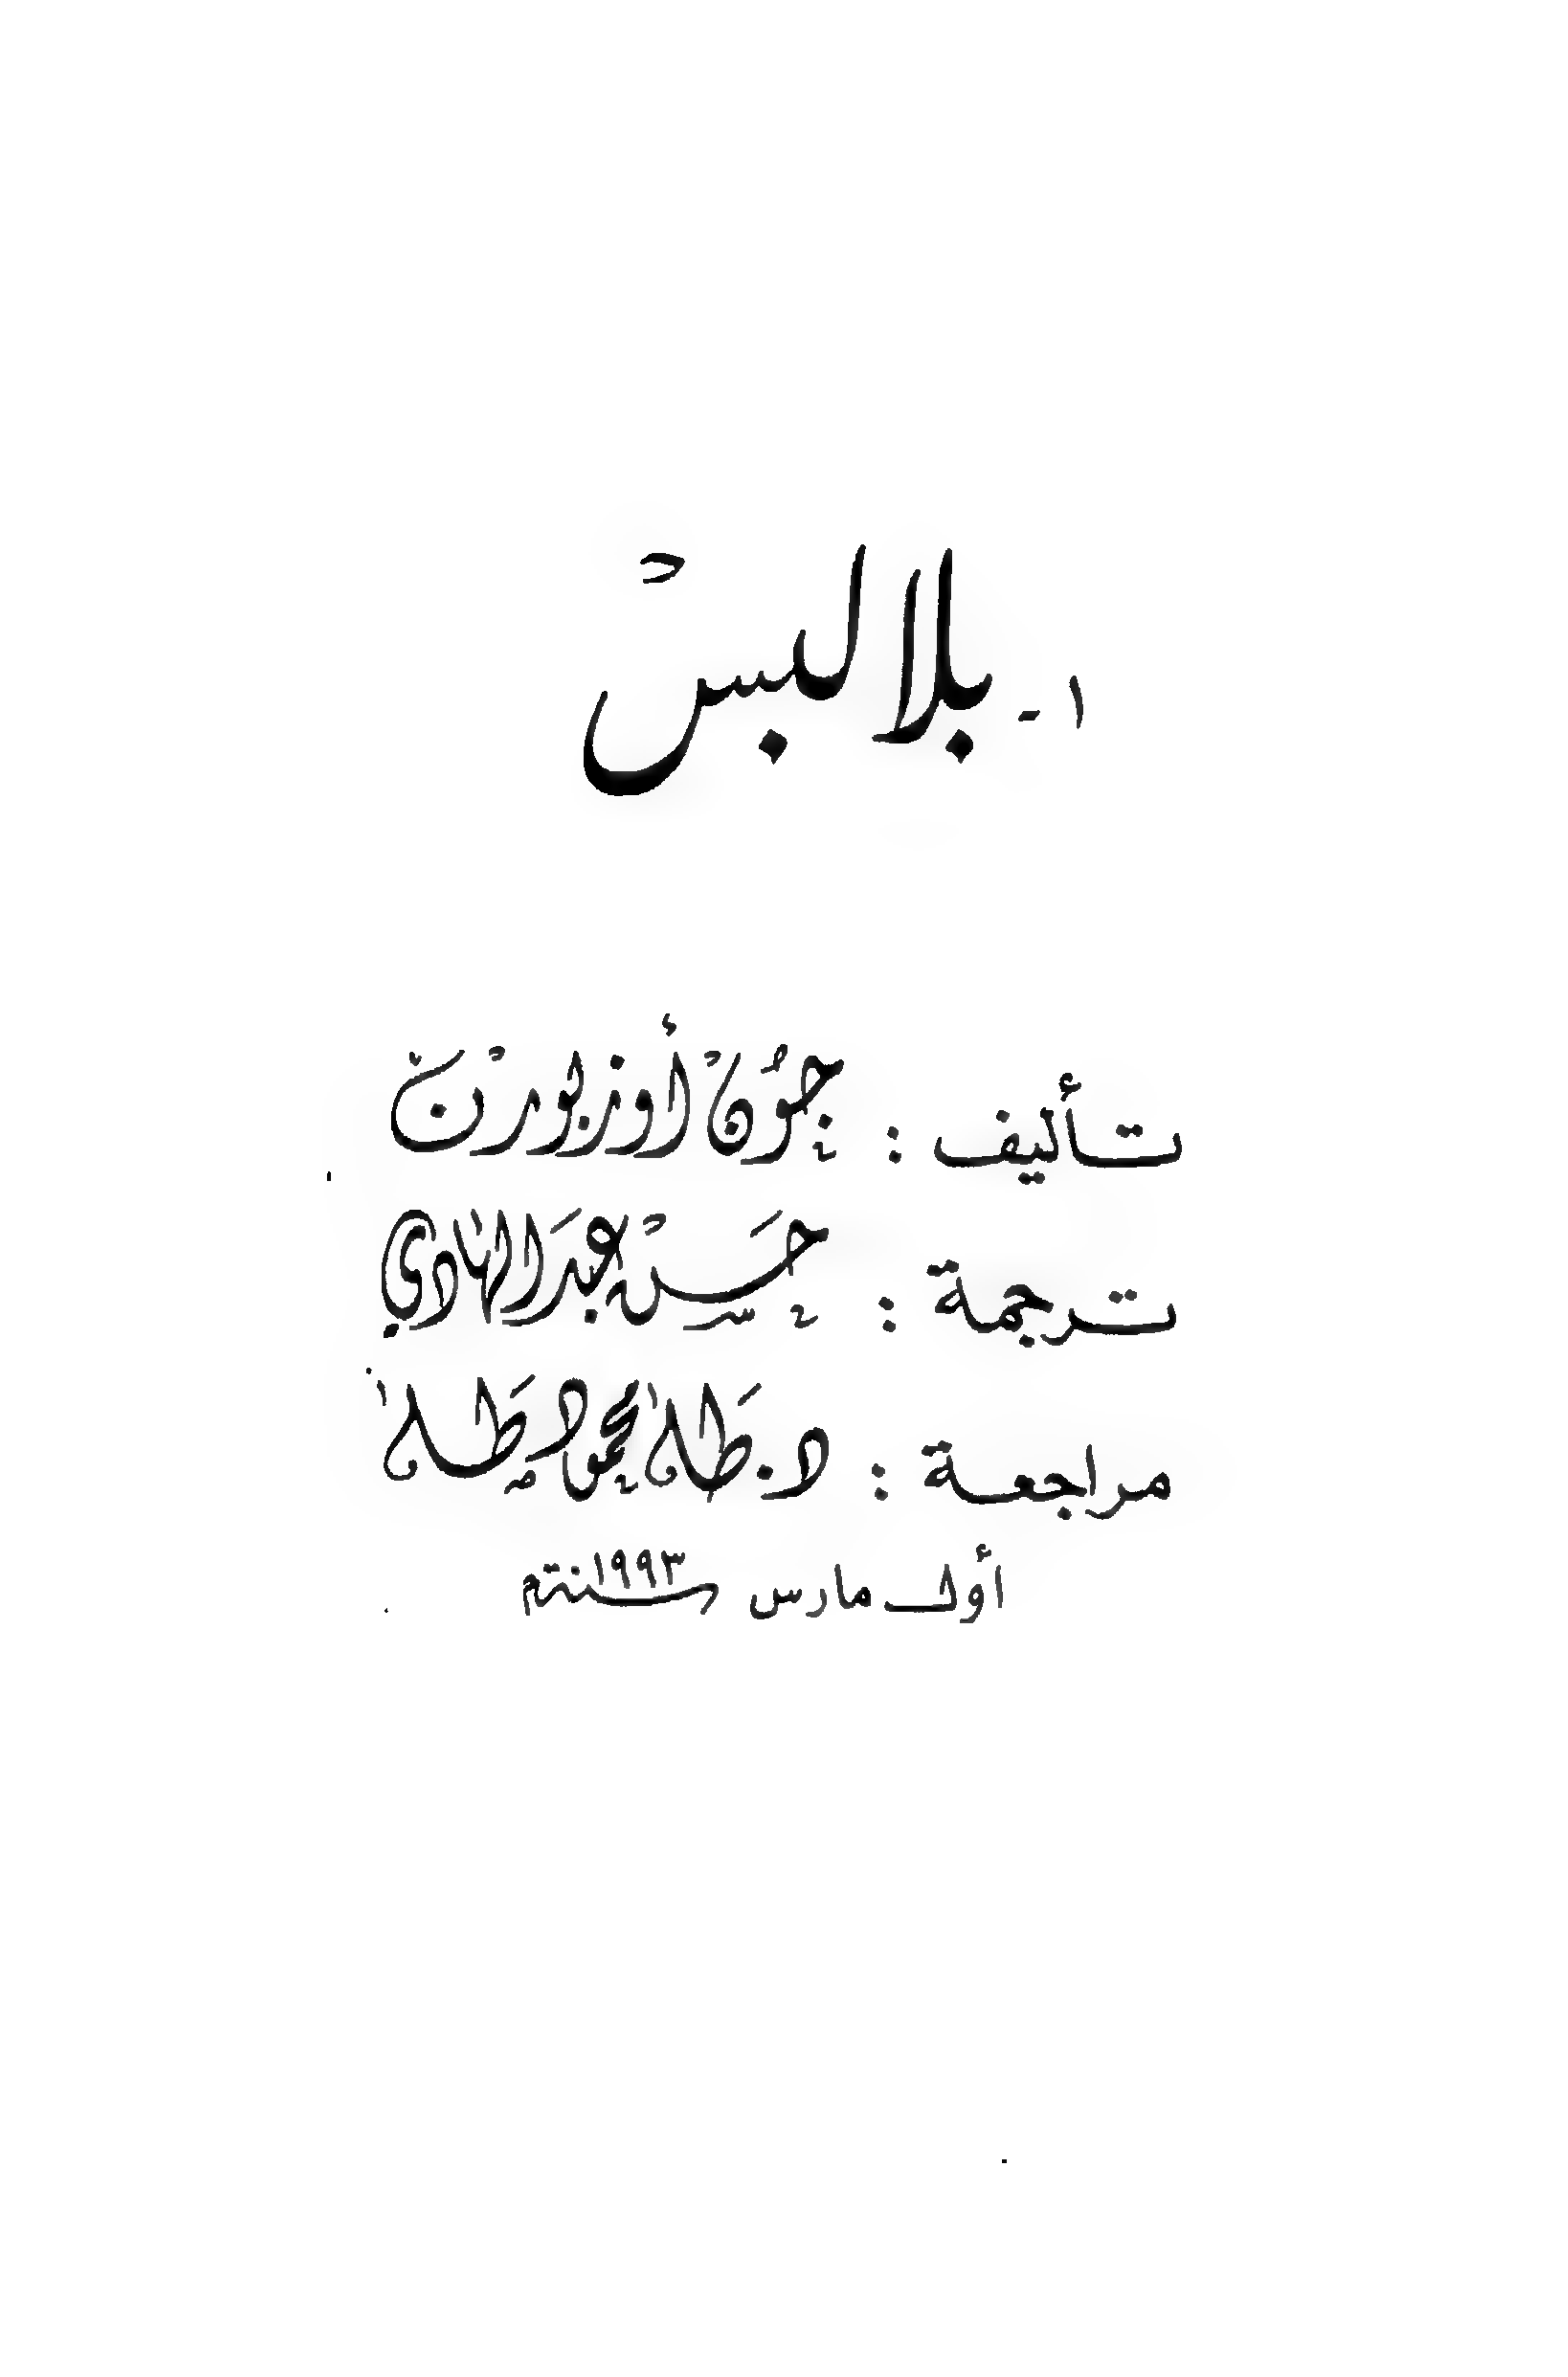 ١- بلا لبسْ
تأليف : جُونْ أوزبورْن
ترجمة : حَسَنْ عبدَ الهادي
مراجعة : د. طَه محمود طَه
أول مارس سنة ١٩٩٣م